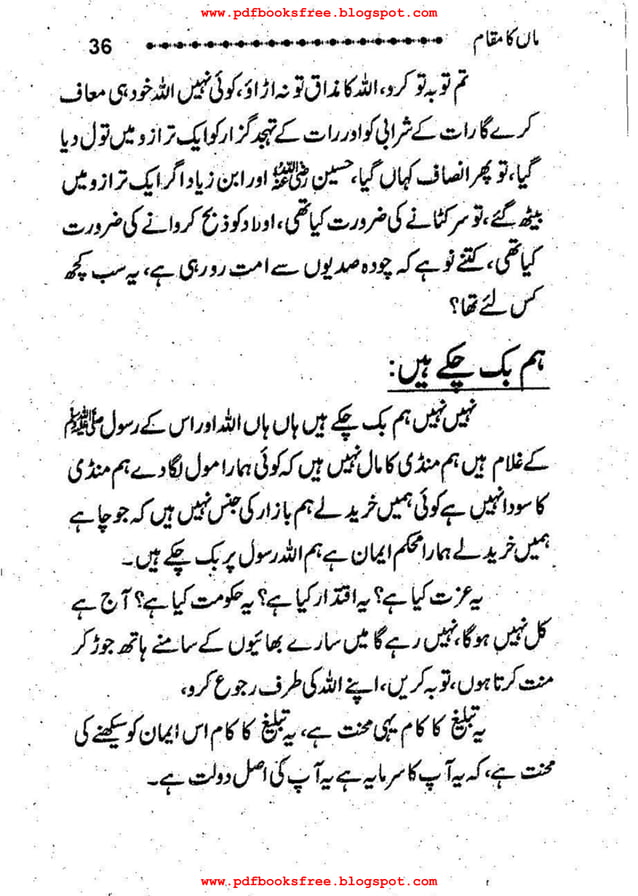 www.pdfbooksfree.blogspot.com
ماں کا مقام 36
تم توبہ تو کرو، اللہ کا مذاق تو نہ اڑاؤ، کوئی نہیں اللہ خود ہی معاف
کرے گا رات کے شرابی کو اور رات کے تہجد گزار کو ایک ترازو میں تول دیا
گیا، تو پھر انصاف کہاں گیا، حسین رضی اللہ عنہ اور ابن زیاد اگر ایک ترازو میں
بیٹھ گئے، تو سر کٹانے کی ضرورت کیا تھی، اولاد کو ذبح کروانے کی ضرورت
کیا تھی، کتنے نوہے کہ چودہ صدیوں سے امت رو رہی ہے، یہ سب کچھ
کس لئے تھا؟
ہم بک چکے ہیں:
نہیں نہیں ہم بک چکے ہیں ہاں ہاں اللہ اور اس کے رسول ﷺ
کے غلام ہیں ہم منڈی کا مال نہیں ہیں کہ کوئی ہمارا مول لگا دے ہم منڈی
کا سودا نہیں ہے کوئی ہمیں خرید لے ہم بازار کی جنس نہیں ہیں کہ جو چاہے
ہمیں خرید لے ہمارا محکم ایمان ہے ہم اللہ رسول پر بک چکے ہیں۔
یہ عزت کیا ہے؟ یہ اقتدار کیا ہے؟ یہ حکومت کیا ہے؟ آج ہے
کل نہیں ہوگا، نہیں رہے گا میں سارے بھائیوں کے سامنے ہاتھ جوڑ کر
منت کرتا ہوں، توبہ کریں، اپنے اللہ کی طرف رجوع کرو،
یہ تبلیغ کا کام یہی محنت ہے، یہ تبلیغ کا کام اس ایمان کو سیکھنے کی
محنت ہے، کہ یہ آپ کا سرمایہ ہے یہ آپ کی اصل دولت ہے۔
www.pdfbooksfree.blogspot.com